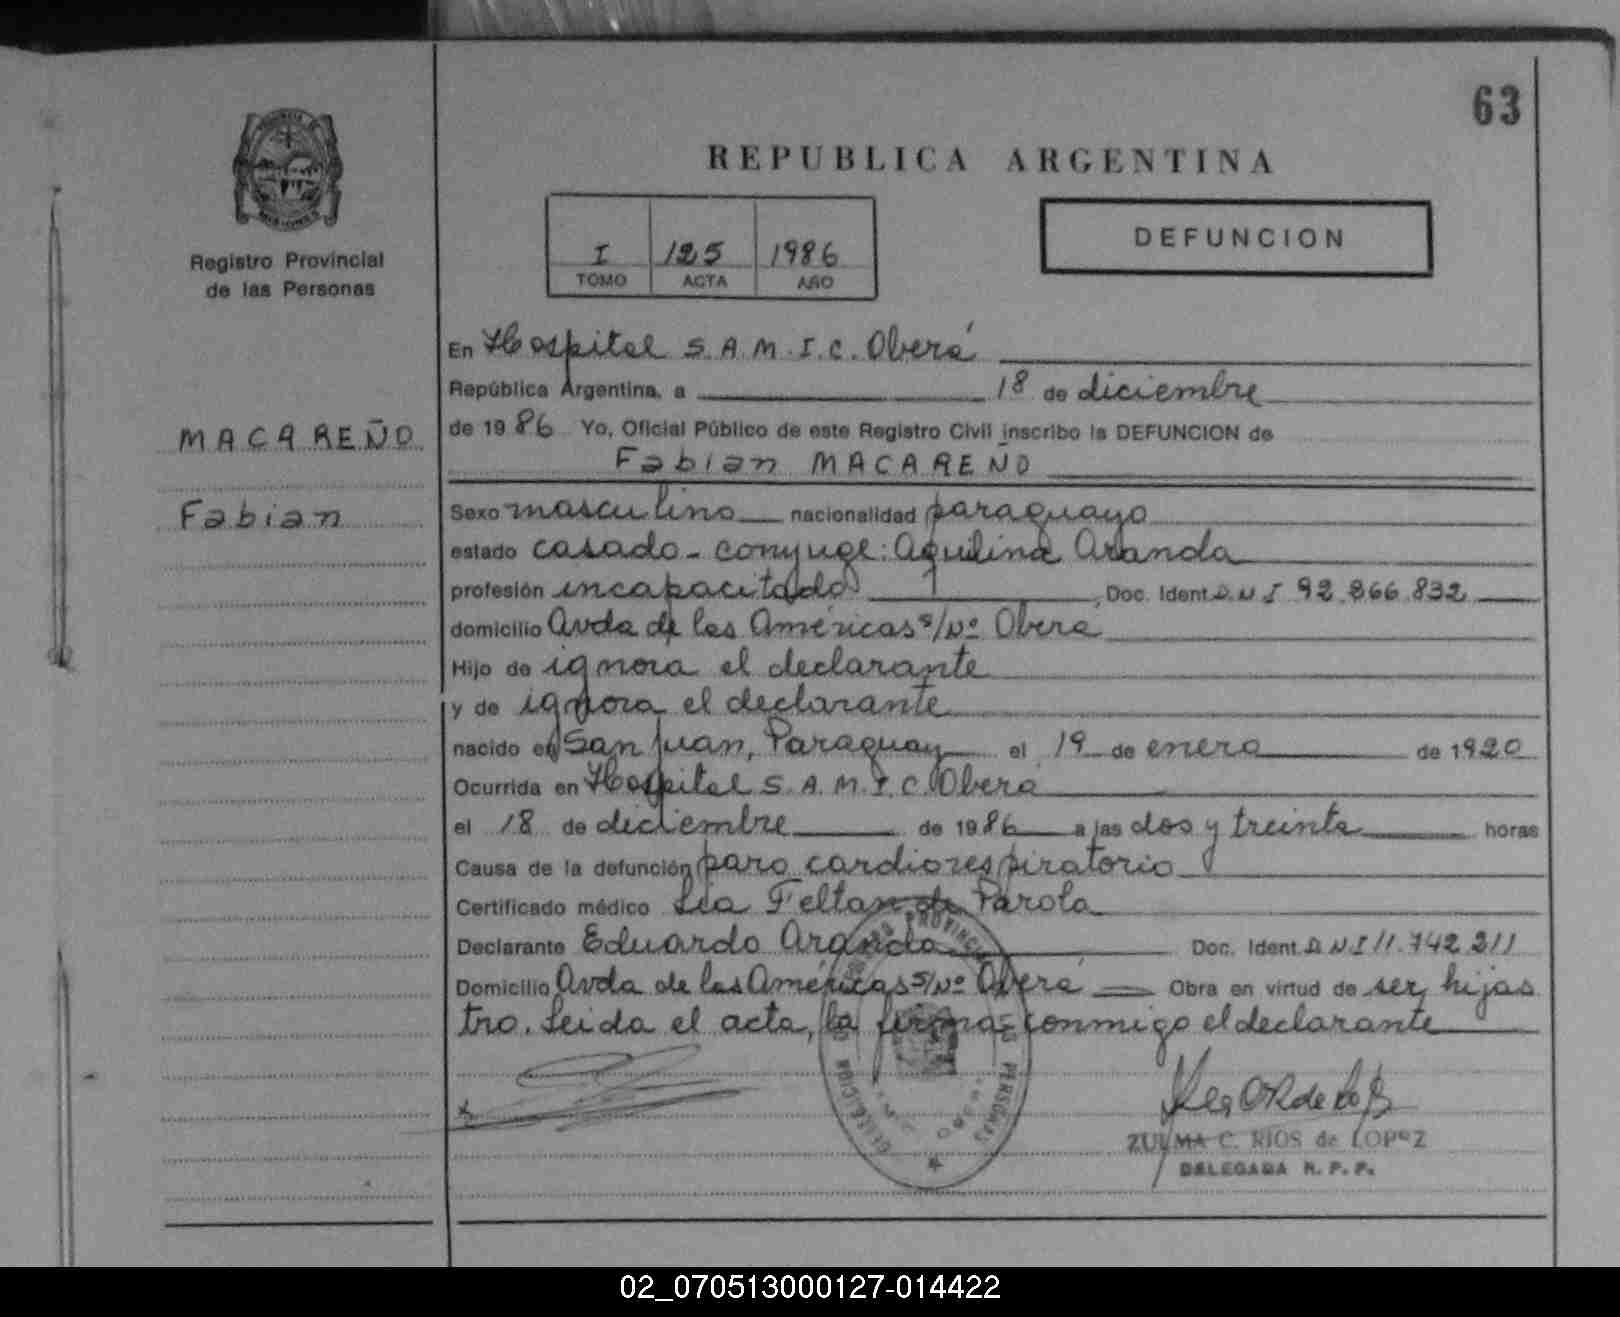 63
REPUBLICA ARGENTINA
I 125 1986
TOMO ACTA AÑO
DEFUNCION
Registro Provincial
de las Personas
MACAREÑO
Fabian
En Hospital S.A.M.I.C. Oberá
República Argentina, a 18 de diciembre
de 1986 Yo, Oficial Público de este Registro Civil inscribo la DEFUNCION de
Fabian MACAREÑO
Sexo masculino nacionalidad paraguayo
estado casado - conyuge: Aquilina Aranda
profesión incapacitado Doc. Ident. D N I 92.866.832
domicilio Avda de las Américas s/Nº Oberá
Hijo de ignora el declarante
y de ignora el declarante
nacido en San Juan, Paraguay el 19 de enero de 1920
Ocurrida en Hospital S.A.M.I.C. Oberá
el 18 de diciembre de 1986 a las dos y treinta horas
Causa de la defunción paro cardiorespiratorio
Certificado médico Lia Feltan de Parola
Declarante Eduardo Aranda Doc. Ident. D N I 11.742.211
Domicilio Avda de las Américas s/Nº Oberá Obra en virtud de ser hijas
tro. Leida el acta, la firma conmigo el declarante
ZULMA C. RIOS de LOPEZ
DELEGADA R. P. P.
02_070513000127-014422